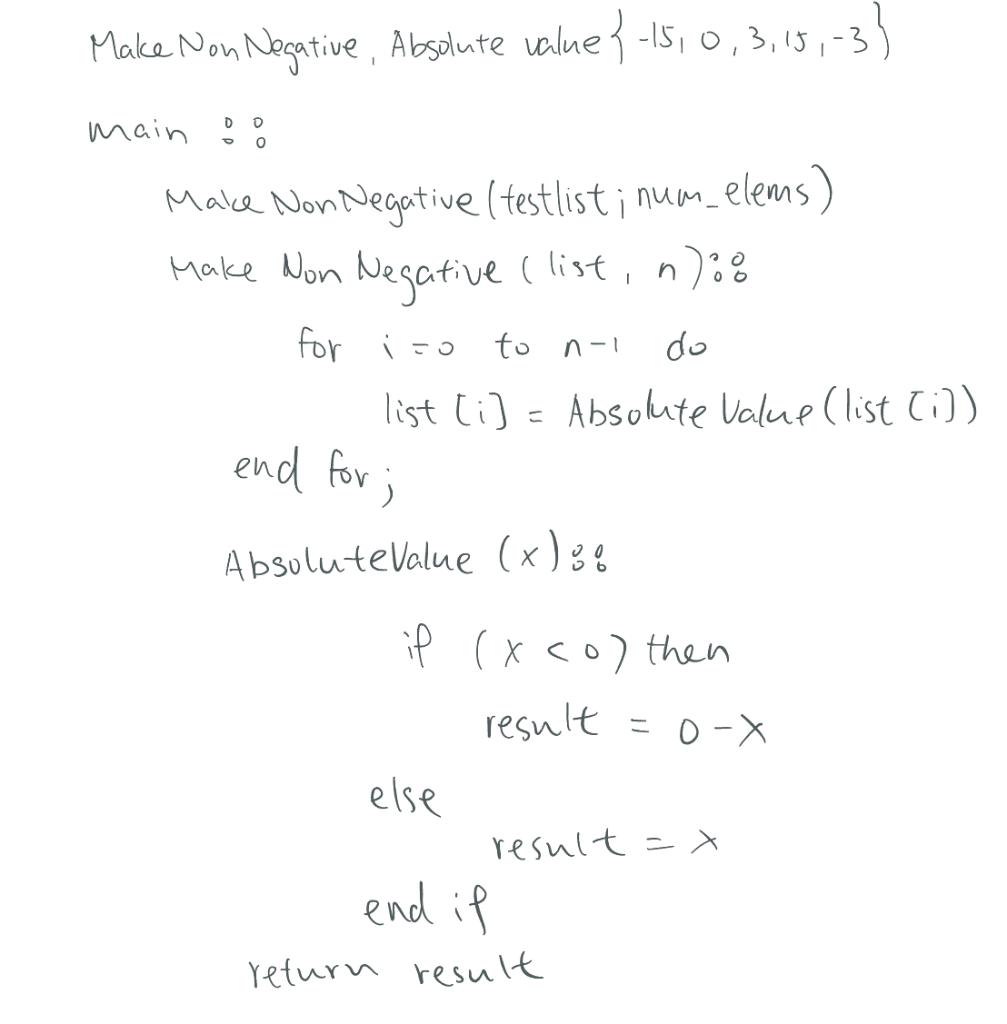 MakeNonNegative, Absolute value { -15, 0, 3, 15, -3 }
main ::
MakeNonNegative (testlist; num_elems)
Make Non Negative ( list, n) ::
for i = 0 to n-1 do
list [i] = Absolute Value (list [i])
end for;
AbsoluteValue (x) ::
if (x < 0) then
result = 0 - x
else
result = x
end if
return result